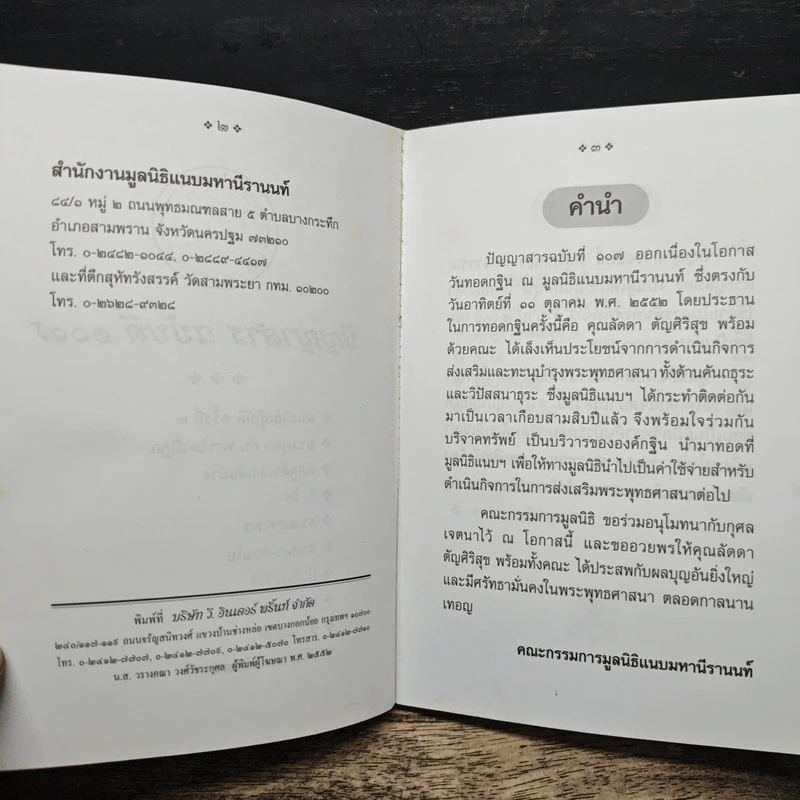 ❖ ๒ ❖
สำนักงานมูลนิธิแนบมหานีรานนท์
๘๔/๑ หมู่ ๒ ถนนพุทธมณฑลสาย ๕ ตำบลบางกระทึก
อำเภอสามพราน จังหวัดนครปฐม ๗๓๒๑๐
โทร. ๐-๒๔๘๒-๑๐๔๔, ๐-๒๘๘๙-๔๔๑๗
และที่ตึกสุหัทรังสรรค์ วัดสามพระยา กทม. ๑๐๒๐๐
โทร. ๐-๒๖๒๘-๙๓๒๘
พิมพ์ที่ บริษัท วี. อินเตอร์ พริ้นท์ จำกัด
๒๔๐/๑๑๗-๑๑๙ ถนนจรัญสนิทวงศ์ แขวงบ้านช่างหล่อ เขตบางกอกน้อย กรุงเทพฯ ๑๐๗๐๐
โทร. ๐-๒๔๑๒-๗๗๐๗, ๐-๒๔๑๒-๗๗๐๙, ๐-๒๔๑๒-๕๐๗๐ โทรสาร. ๐-๒๔๑๒-๗๗๑๐
น.ส. วรางคณา วงศ์วัชระกุศล ผู้พิมพ์ผู้โฆษณา พ.ศ. ๒๕๕๒
❖ ๓ ❖
คำนำ
ปัญญาสารฉบับที่ ๑๐๗ ออกเนื่องในโอกาส
วันทอดกฐิน ณ มูลนิธิแนบมหานีรานนท์ ซึ่งตรงกับ
วันอาทิตย์ที่ ๑๑ ตุลาคม พ.ศ. ๒๕๕๒ โดยประธาน
ในการทอดกฐินครั้งนี้คือ คุณลัดดา ตัญศิริสุข พร้อม
ด้วยคณะ ได้เล็งเห็นประโยชน์จากการดำเนินกิจการ
ส่งเสริมและทะนุบำรุงพระพุทธศาสนา ทั้งด้านคันถธุระ
และวิปัสสนาธุระ ซึ่งมูลนิธิแนบฯ ได้กระทำติดต่อกัน
มาเป็นเวลาเกือบสามสิบปีแล้ว จึงพร้อมใจร่วมกัน
บริจาคทรัพย์ เป็นบริวารขององค์กฐิน นำมาทอดที่
มูลนิธิแนบฯ เพื่อให้ทางมูลนิธินำไปเป็นค่าใช้จ่ายสำหรับ
ดำเนินกิจการในการส่งเสริมพระพุทธศาสนาต่อไป
คณะกรรมการมูลนิธิ ขอร่วมอนุโมทนากับกุศล
เจตนาไว้ ณ โอกาสนี้ และขออวยพรให้คุณลัดดา
ตัญศิริสุข พร้อมทั้งคณะ ได้ประสพกับผลบุญอันยิ่งใหญ่
และมีศรัทธามั่นคงในพระพุทธศาสนา ตลอดกาลนาน
เทอญ
คณะกรรมการมูลนิธิแนบมหานีรานนท์